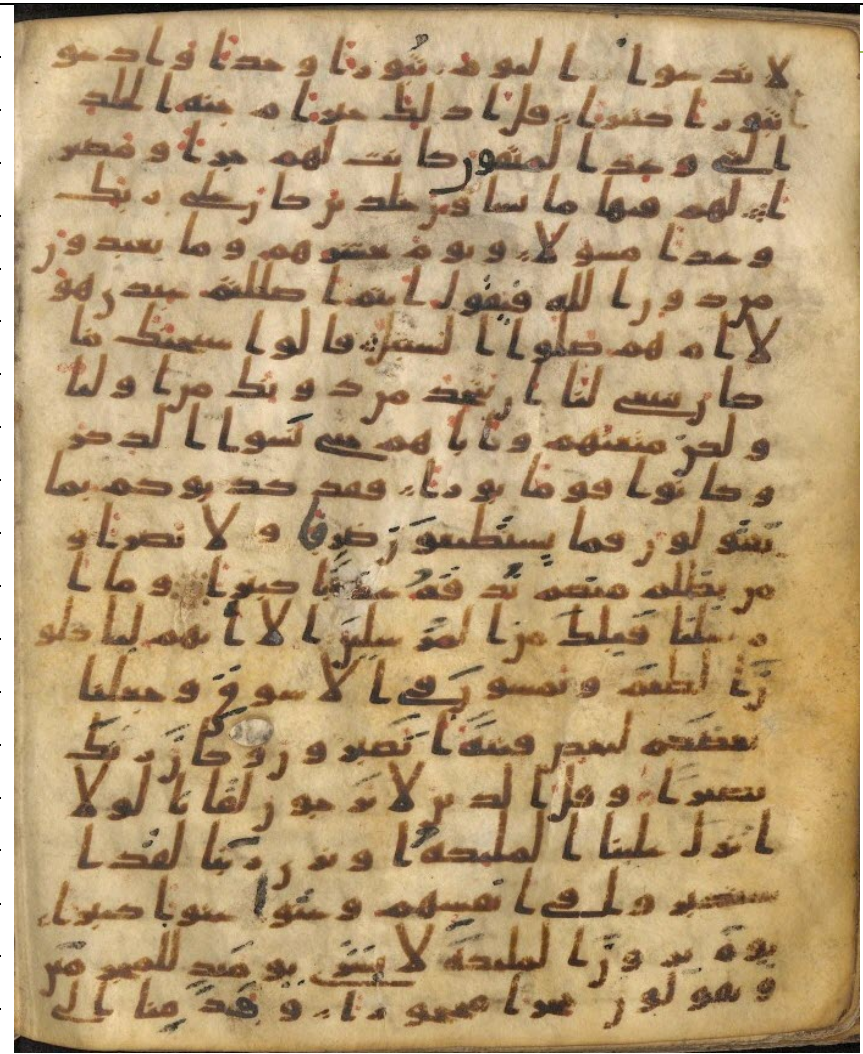 لا تدعوا اليوم ثبورا وحدا وادعو
ثبورا كثيرا قل اذلك خير ام جنه الخلد
التى وعد المتقون كانت لهم جزا ومصير
ا لهم فيها ما يشاون خلدين كان على ربك
وعدا مسولا ويوم يحشرهم وما يعبدون
من دون الله فيقول انتم اضللتم عبدى هو
لا ام هم ضلوا السبيل قالوا سبحنك ما
كان ينبغى لنا ان نتخذ من دونك من اوليا
ولكن متعتهم واباهم حتى نسوا الذكر
وكانوا قوما بورا فقد كذبوكم بما
تقولون فما يستطيعون صرفا ولا نصرا و
من يظلم منكم نذقه عذابا كبيرا وما ا
رسلنا قبلك من المرسلين الا انهم لياكلو
ن الطعم ويمشون فى الاسوق وجعلنا
بعضكم لبعض فتنه اتصبرون وكان ربك
بصيرا وقال الذين لا يرجون لقانا لولا
انزل علينا الملئكه او نرى ربنا لقد ا
ستكبروا فى انفسهم وعتوا عتوا كبيرا
يوم يرون الملئكه لا بشرى يومئذ للمجرمين
ويقولون حجرا محجورا وقدمنا الى